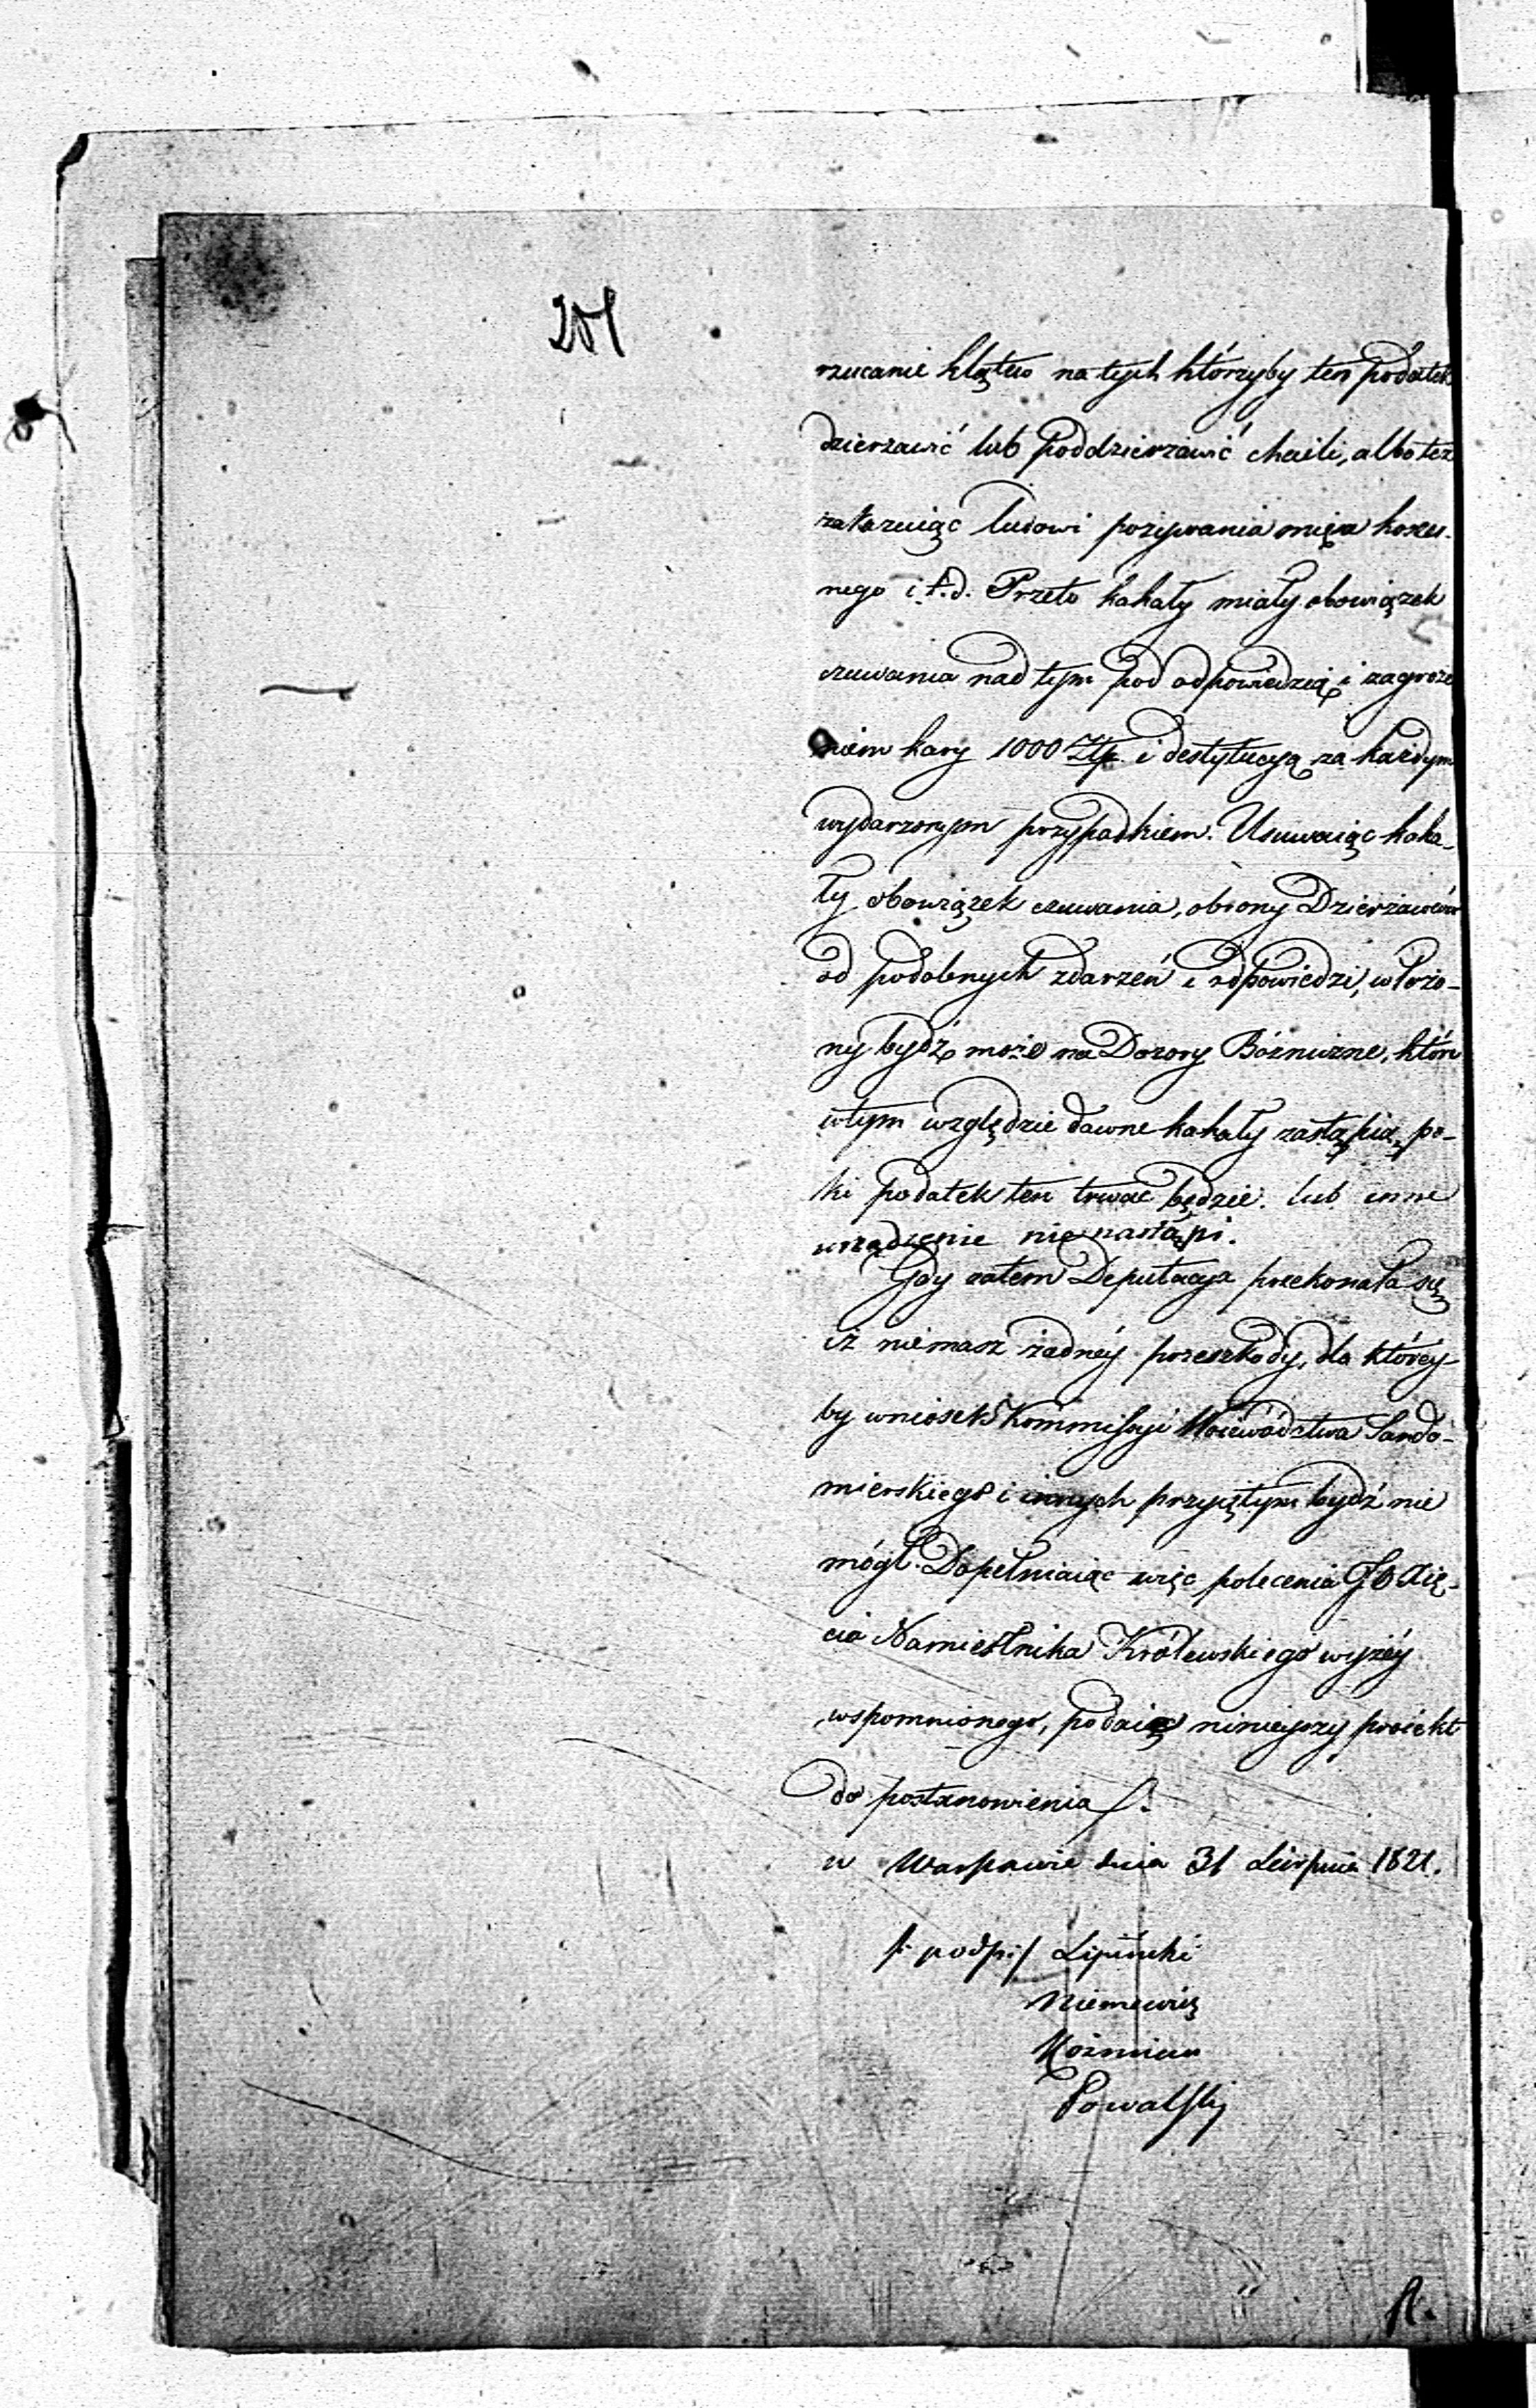 201
rzucanie klątw na tych którzyby ten podatek
dzierzawić lub poddzierzawić chcieli, albo tez
zakazuiąc ludowi pozywania mięsa koszer-
nego i t.d. Przeto kahały miały obowiązek
czuwania nad tym pod odpowiedzią i zagroże
niem kary 1000 Złp. i destytucyą za każdym
wydarzonym przypadkiem. Usuwaiąc kaha-
ły obowiązek czuwania, obrony Dzierżawców
od podobnych zdarzeń i odpowiedzi, włożo-
ny bydź może na Dozory Bóżnicze, które
w tym względzie dawne kahały zastąpią, po-
ki podatek ten trwać będzie. lub inne
urządzenie nie nastąpi.
Gdy zatem Deputacya przekonała się
iż niemasz żadnéy przeszkody, dla którey
by wniosek Kommissyi Woiewództwa Sando-
mierskiego i innych przyiętym bydź nie
mógł. Dopełniaiąc więc polecenia JO Xię-
cia Namiestnika Królewskiego wyżéy
wspomnionego, podaię ninieyszy proiekt
do postanowienia /.
w Warszawie dnia 31 Sierpnia 1821.
/: podpi:/ Lipiński
Niemcewicz
Koźmian
Kowalski